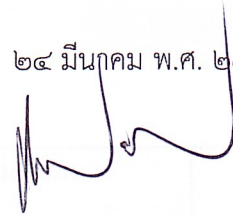 ๒๔ มีนาคม พ.ศ. ๒